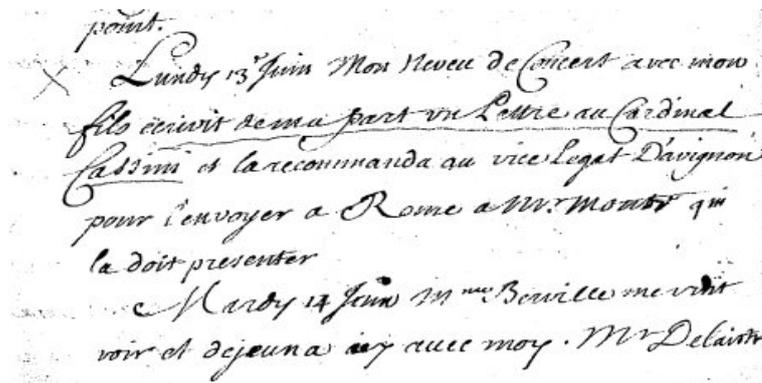 point.
Lundy 13e Juin Mon Neveu de Concert avec mon
fils ecrivit de ma part un Lettre au Cardinal
Cassini et la recommanda au vice Legat D'avignon
pour l'envoyer a Rome a Mr. Montr qui
la doit presenter
Mardy 14 Juin Mme Berville me vint
voir et dejeuna icy avec moy. Mr Delaistr